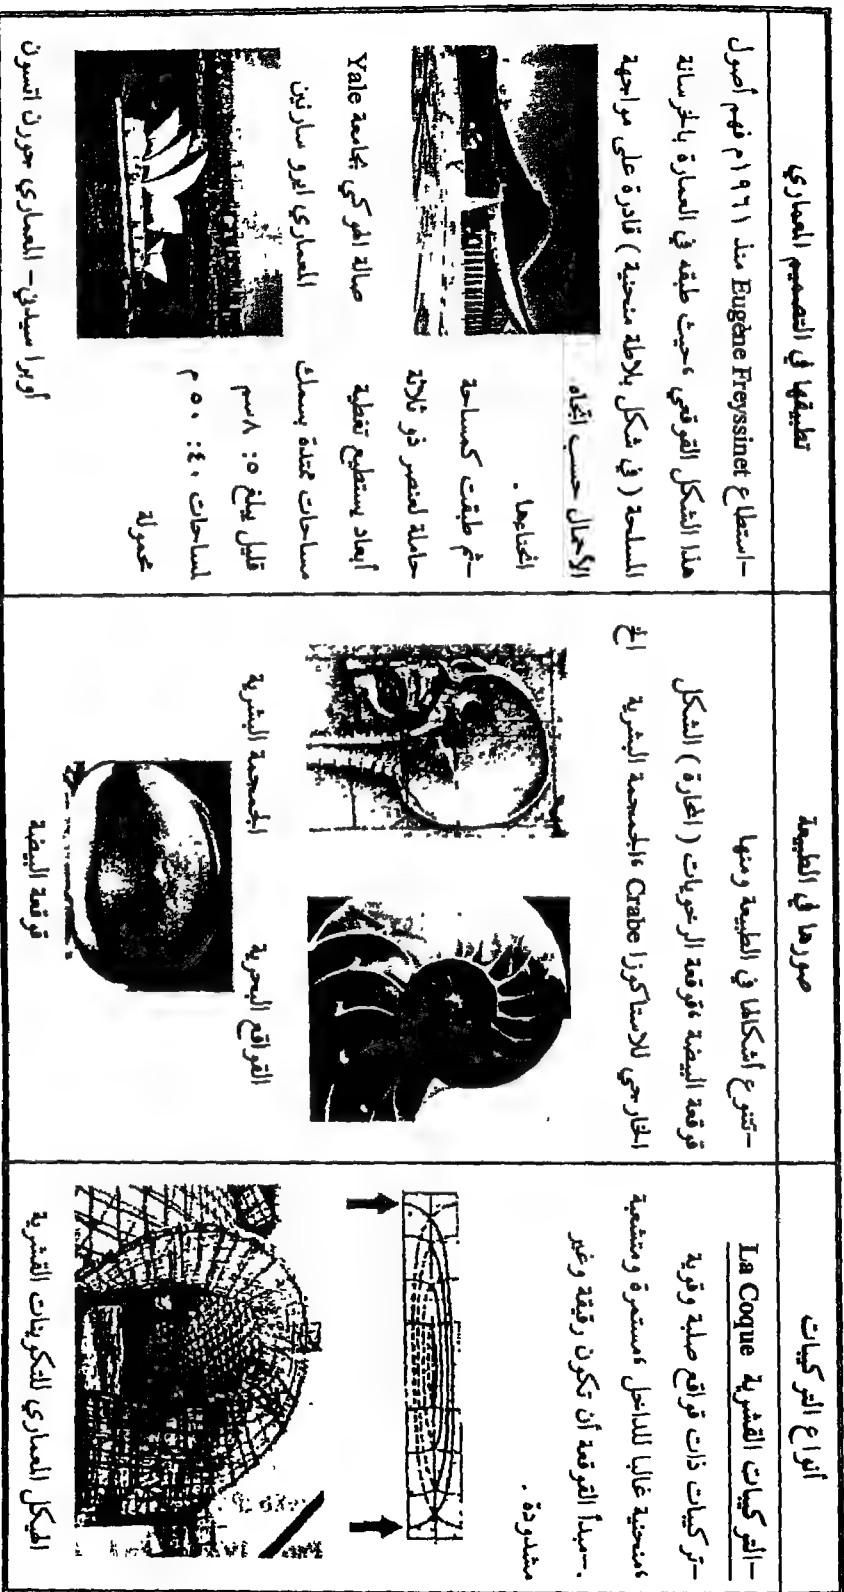 أنواع التركيبات
–التركيبات القشرية La Coque
–تركيبات ذات قواقع صلبة وقوية
،منحنية غالبا للداخل ،مستمرة ومتشعبة
.–مبدأ القوقعة أن تكون رقيقة وغير
مشدودة .
الهيكل المعماري للتكوينات القشرية
صورها في الطبيعة
–تتنوع أشكالها في الطبيعة ومنها
قوقعة البيضة ،قوقعة الرخويات ( المحارة ) الشكل
الخارجي للاستاكوزا Crabe ،الجمجمة البشرية الخ
القواقع البحرية
الجمجمة البشرية
قوقعة البيضة
تطبيقها في التصميم المعماري
–استطاع Eugène Freyssinet منذ ١٩٦١م فهم أصول
هذا الشكل القوقعي ،حيث طبقه في العمارة بالخرسانة
المسلحة ( في شكل بلاطة منحنية ) قادرة على مواجهة
الأحمال حسب اتجاه
انحناءها .
–ثم طبقت كمساحة
حاملة لعنصر ذو ثلاثة
أبعاد يستطيع تغطية
مساحات ممتدة بسمك
قليل يبلغ ٥: ٨سم
لمساحات ٤٠: ٥٠ م
محمولة
صالة الهوكي بجامعة Yale
المعماري ايرو سارنين
أوبرا سيدني– المعماري جورن اتسون